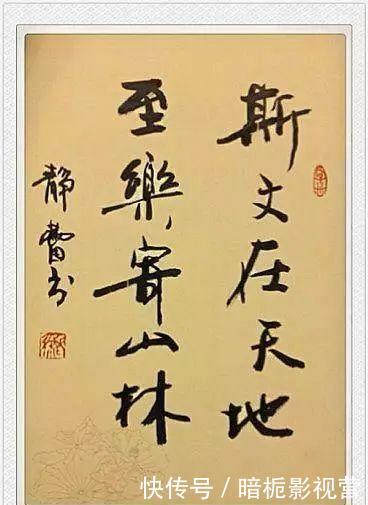 斯文在天地
至樂寄山林
静賚书
快传号／暗栀影视营